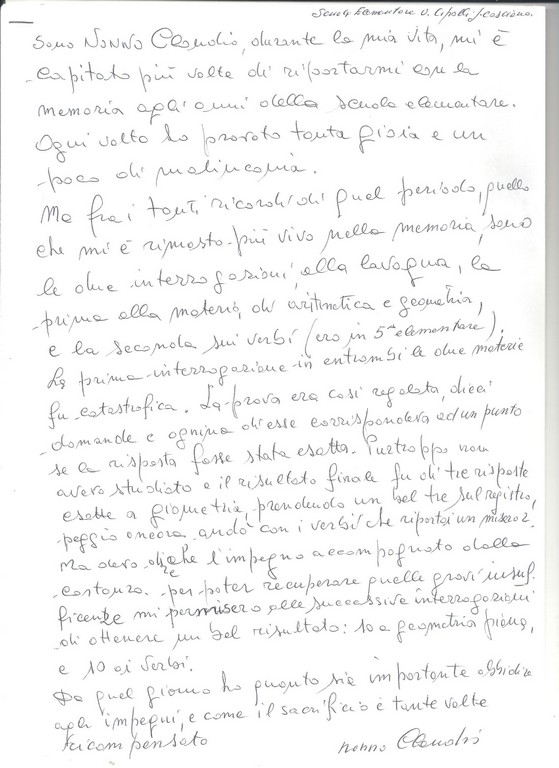 Scuola Elementare V. Cipolli
Sono Nonno Claudio, durante la mia vita, mi è
capitato più volte di riportarmi con la
memoria agli anni della scuola elementare.
Ogni volta ho provato tanta gioia e un
poco di malinconia.
Ma fra i tanti ricordi di quel periodo, quello
che mi è rimasto più vivo nella memoria, sono
le due interrogazioni, alla lavagna, la
prima alla materia, di aritmetica e geometria,
e la seconda sui verbi (ero in 5ª elementare).
La prima interrogazione in entrambi le due materie
fu catastrofica. La prova era così regolata, dieci
domande e ognina di esse corrispondeva ad un punto
se la risposta fosse stata esatta. Purtroppo non
avevo studiato e il risultato finale fu di tre risposte
esatte a giometria, prendendo un bel tre sul registro,
peggio ancora andò con i verbi che riportai un misero 2.
Ma devo dire che l'impegno accompagnato dalla
costanza per poter recuperare quelle gravi insuf.
ficenze mi permisero alle successive interrogazioni
di ottenere un bel risultato: 10 a geometria piana,
e 10 ai verbi.
Da quel giorno ho quanto sia importante
agli impegni, e come il sacrificio è tante volte
ricompensato
nonno Claudio